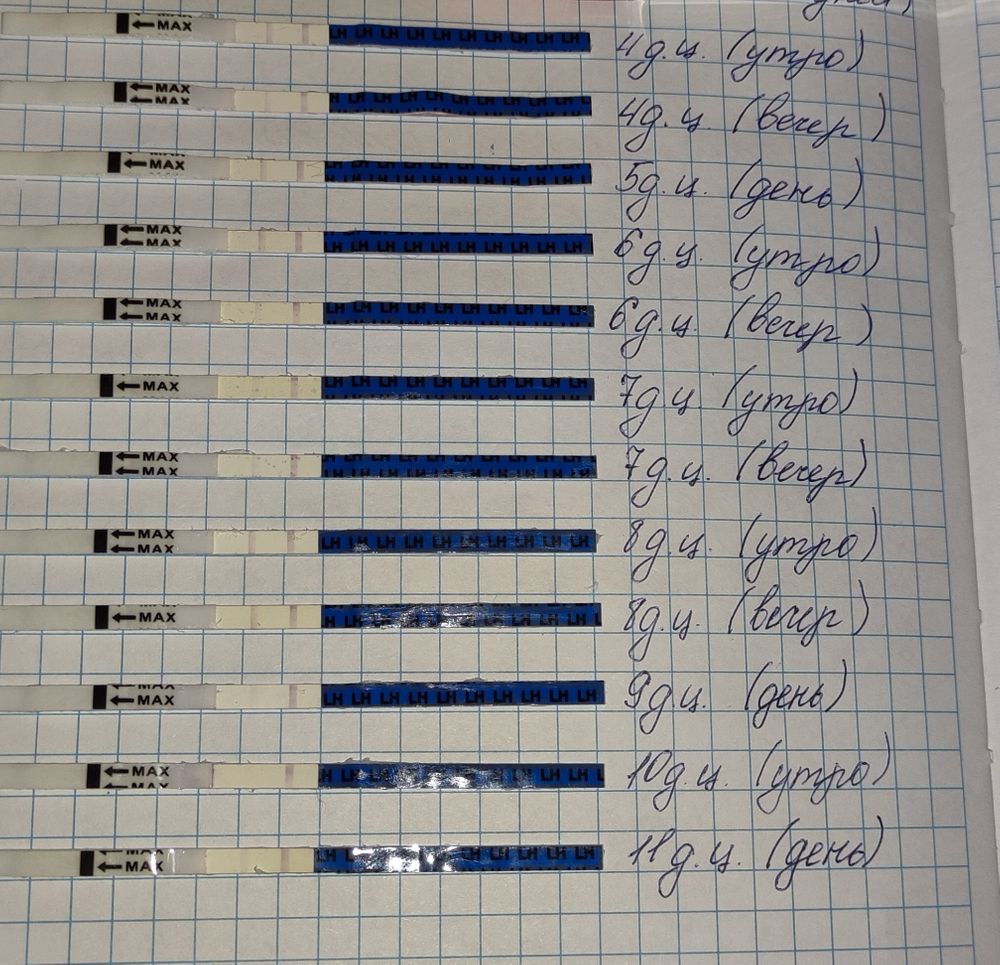 MAX LH LH LH LH LH LH LH LH LH LH 4 д.ц. (утро)
MAX MAX LH LH LH LH LH LH LH LH 4 д.ц. (вечер)
MAX LH LH LH LH LH LH LH LH LH 5 д.ц. (день)
MAX MAX LH LH LH LH LH LH LH LH LH LH 6 д.ц. (утро)
MAX MAX LH LH LH LH LH LH LH LH LH 6 д.ц. (вечер)
MAX LH LH LH LH LH LH LH LH LH LH 7 д.ц (утро)
MAX MAX LH LH LH LH LH LH LH LH LH 7 д.ц. (вечер)
MAX MAX LH LH LH LH LH LH LH LH LH LH 8 д.ц. (утро)
MAX 8 д.ц. (вечер)
MAX LH LH LH LH LH LH LH LH LH LH 9 д.ц. (день)
MAX LH LH LH LH LH LH LH LH LH 10 д.ц. (утро)
MAX LH LH LH LH LH LH LH LH LH LH 11 д.ц. (день)